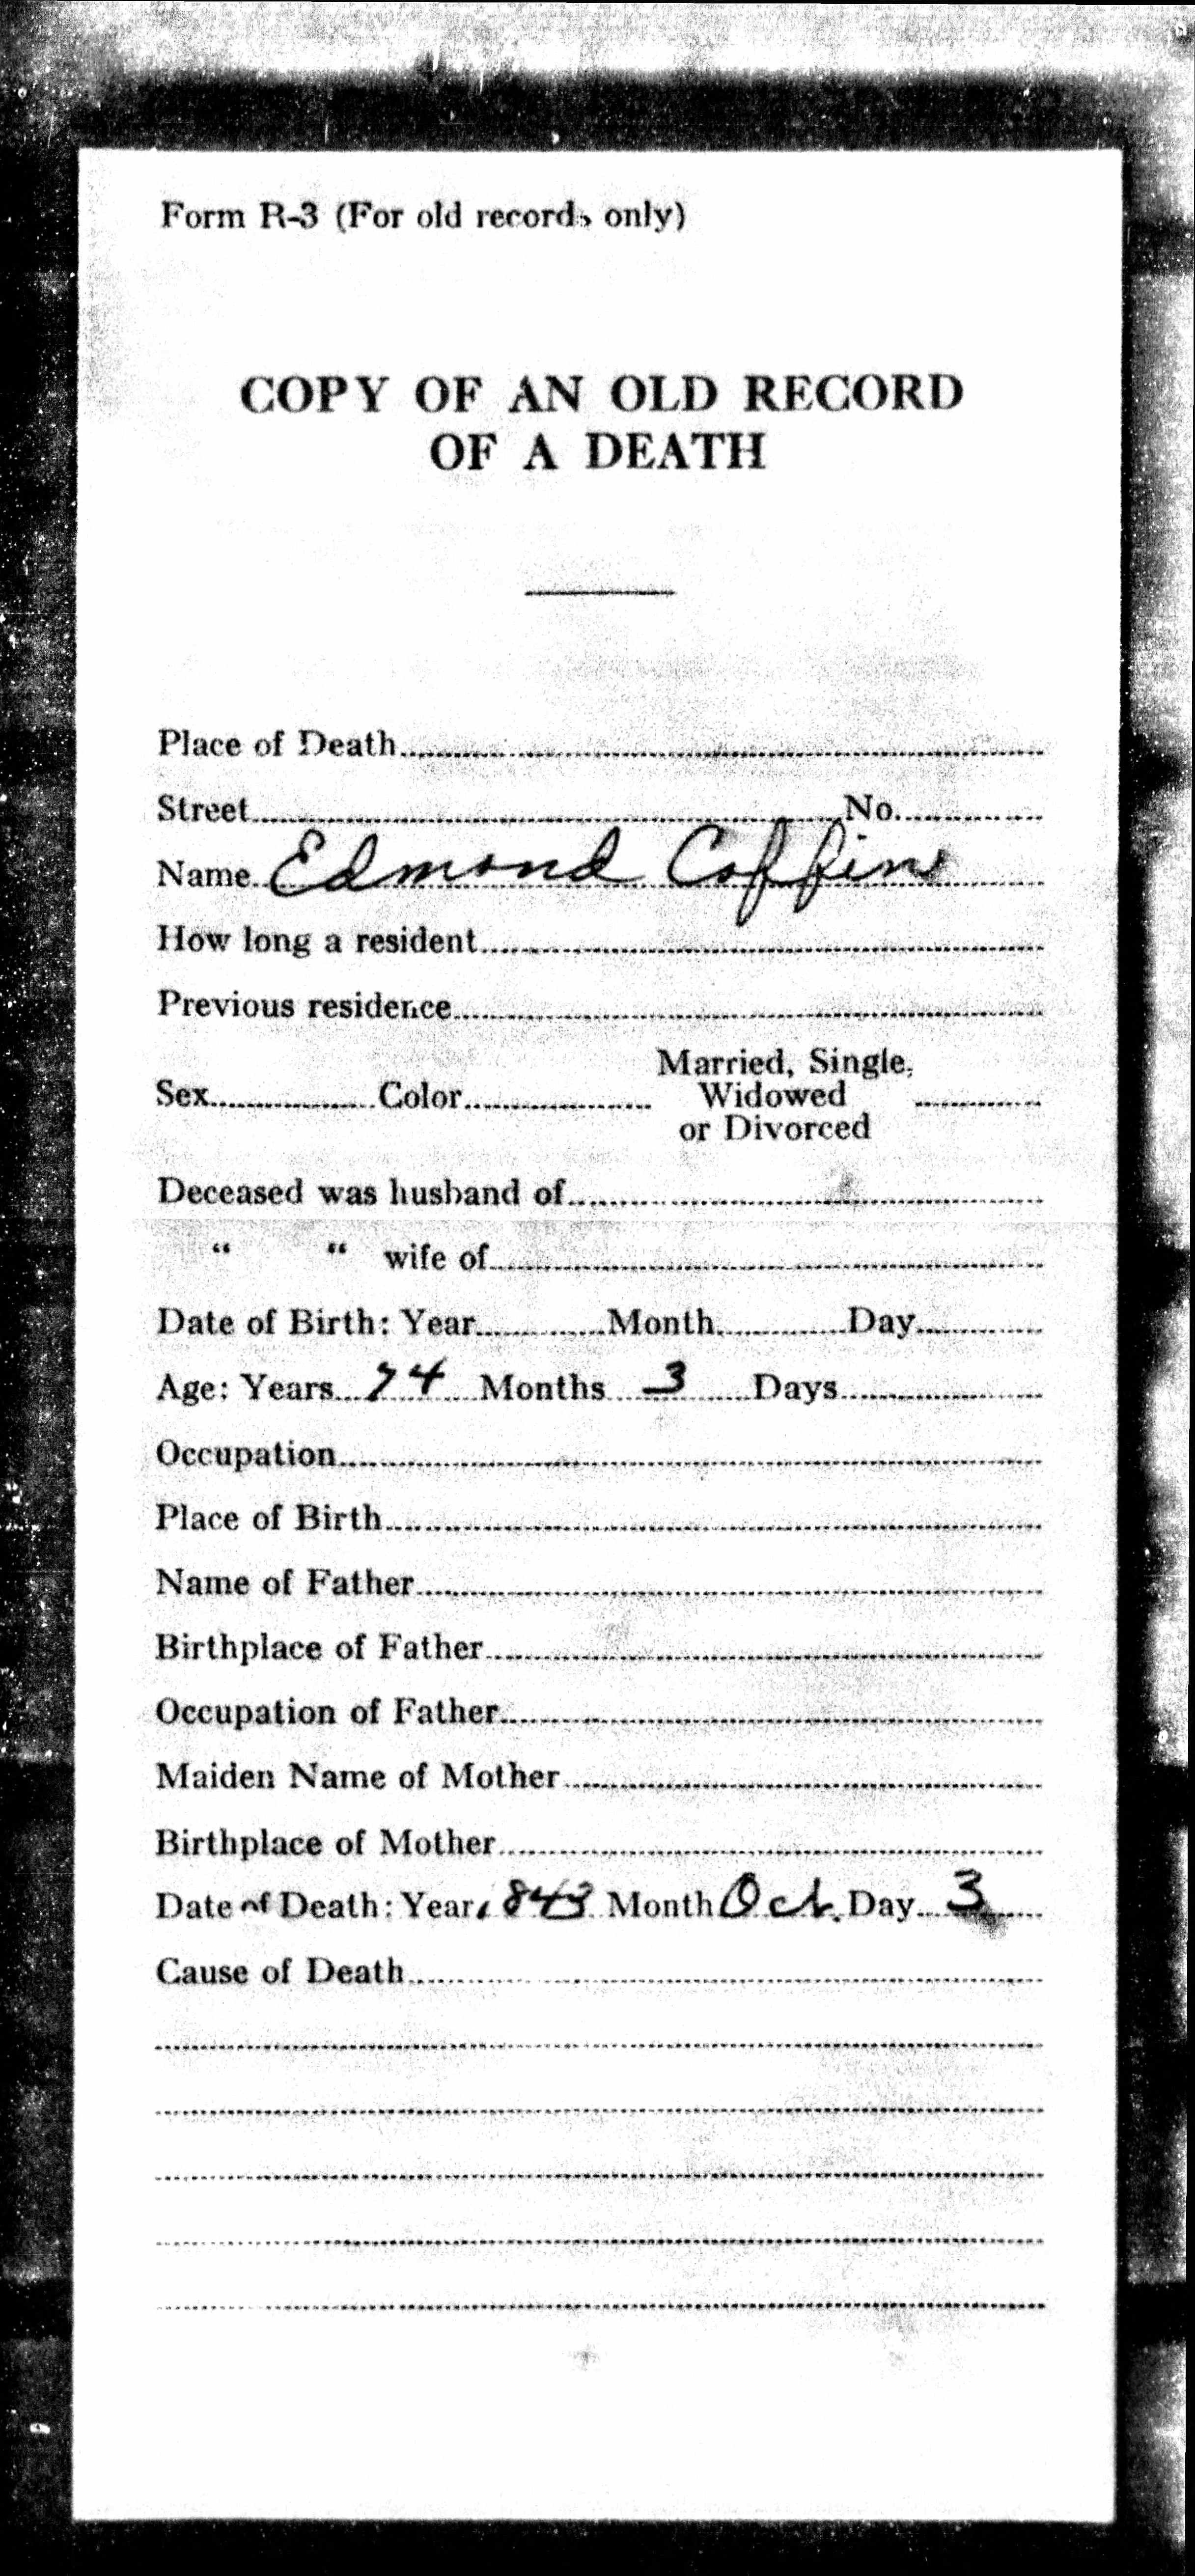 Form R-3 (For old records only)
COPY OF AN OLD RECORD
OF A DEATH
Place of Death
Street No.
Name Edmond Coffin
How long a resident
Previous residence
Married, Single,
Sex Color Widowed
or Divorced
Deceased was husband of
“ “ wife of
Date of Birth: Year Month Day
Age: Years 74 Months 3 Days
Occupation
Place of Birth
Name of Father
Birthplace of Father
Occupation of Father
Maiden Name of Mother
Birthplace of Mother
Date of Death: Year 1843 Month Oct. Day 3
Cause of Death